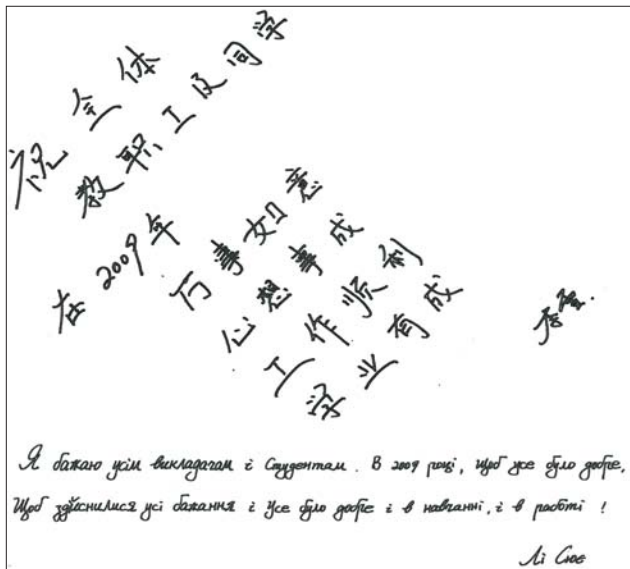 祝全体
教职工及同学
在2009年
万事如意
心想事成
工作顺利
学业有成
李雪.
Я бажаю усім викладачам і Студентам. В 2009 році, щоб усе було добре,
Щоб здійснилися усі бажання і Усе було добре і в навчанні, і в работі !
Лі Сюе